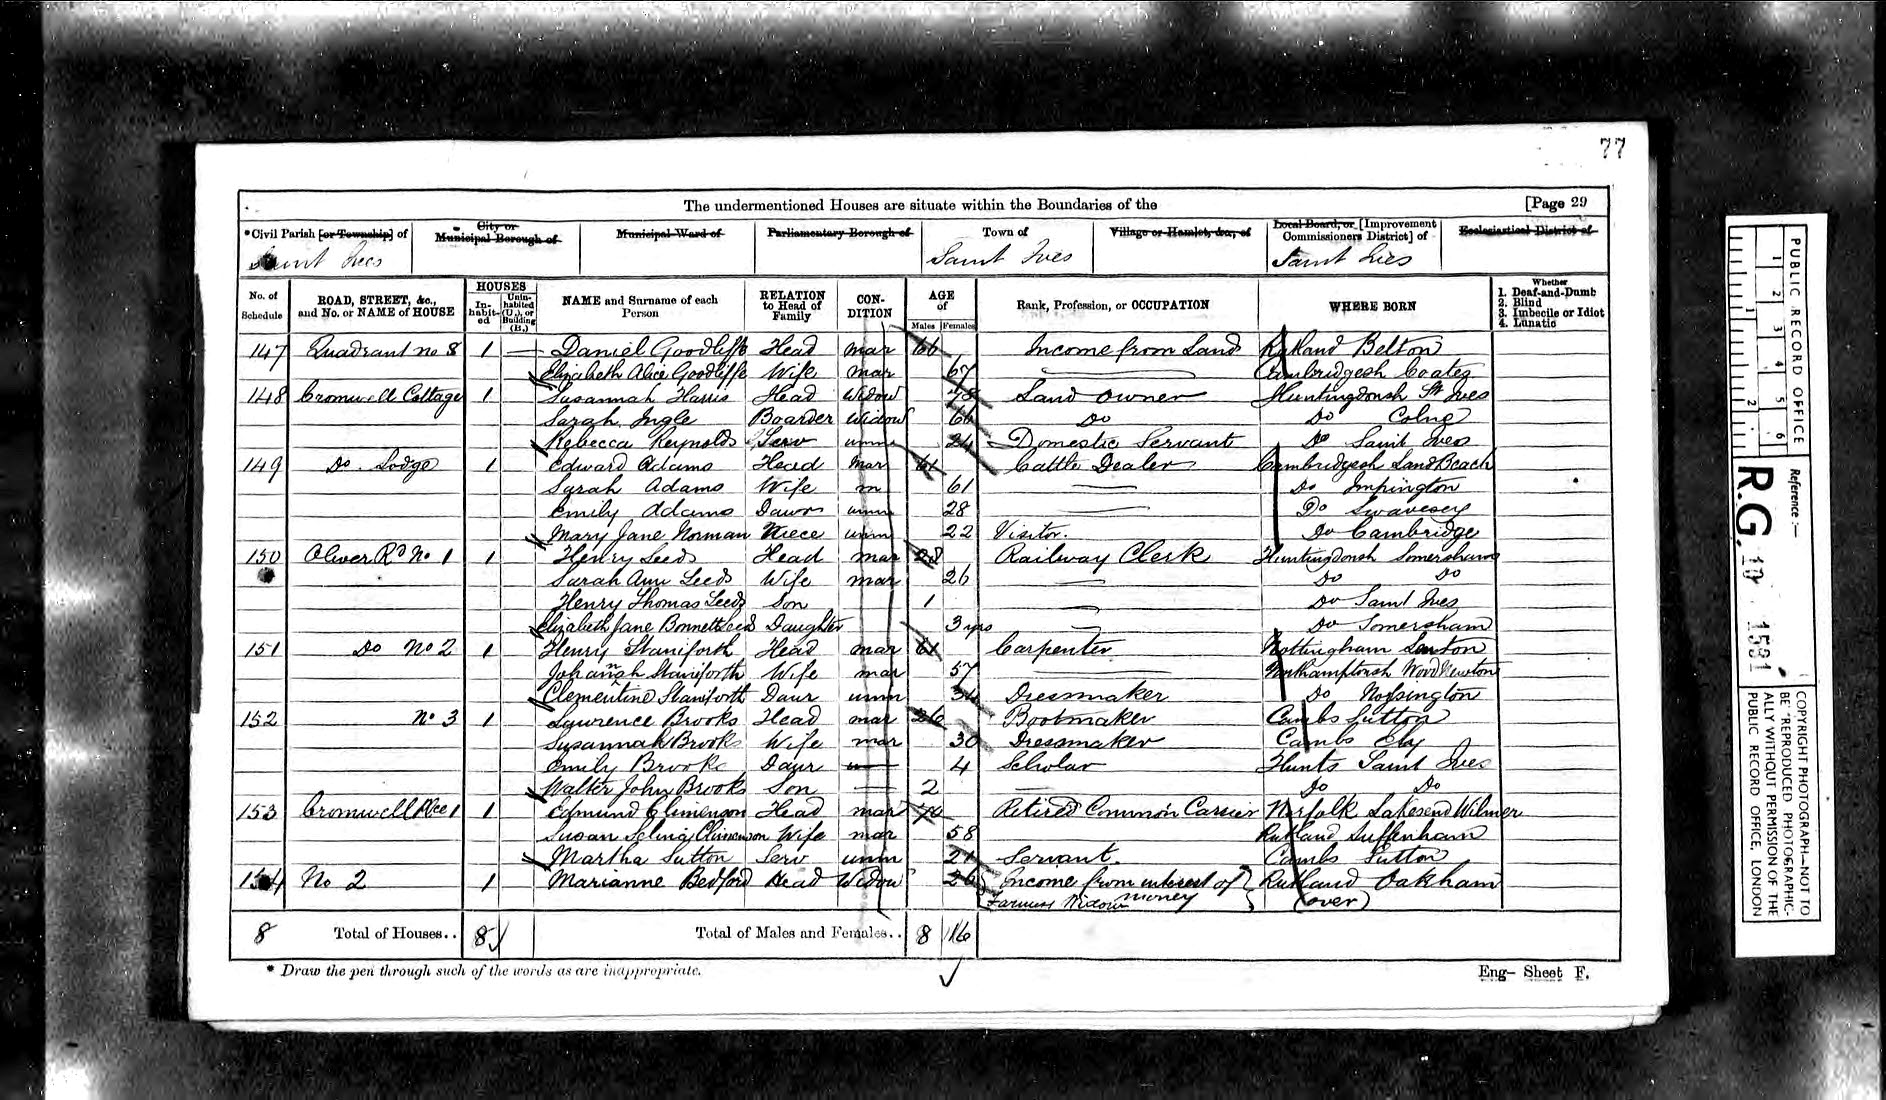 77
The undermentioned Houses are situate within the Boundaries of the [Page 29
*Civil Parish [or Township] of
City or Municipal Borough of
Municipal Ward of
Parliamentary Borough of
Town of
Village or Hamlet, &c., of
Local Board, or [Improvement Commissioners District] of
Ecclesiastical District of
Saint Ives Saint Ives Saint Ives
No. of Schedule
ROAD, STREET, &c., and No. or NAME of HOUSE
HOUSES
In-habit-ed
Unin-habited (U.), or Building (B.)
NAME and Surname of each Person
RELATION to Head of Family
CON-DITION
AGE of
Males Females
Rank, Profession, or OCCUPATION
WHERE BORN
Whether
1. Deaf-and-Dumb
2. Blind
3. Imbecile or Idiot
4. Lunatic
147 Quadrant no 8 1 Daniel Goodliffe Head mar 66 Income from Land Rutland Belton
Elizabeth Alice Goodliffe Wife mar 67 Cambridgesh Coates
148 Cromwell Cottage 1 Susannah Harris Head Widow Land Owner Huntingdonsh St Ives
Sarah Ingle Boarder Widow 66 Do Do Colne
Rebecca Reynolds Serv unm 24 Domestic Servant Do Saint Ives
149 Do Lodge 1 Edward Adams Head Mar 61 Cattle Dealer Cambridgesh Land Beach
Sarah Adams Wife m 61 Do Impington
Emily Adams Daur unm 28 Do Swavesey
Mary Jane Norman Niece unm 22 Visitor. Do Cambridge
150 Oliver Rd No 1 1 Henry Leeds Head mar 28 Railway Clerk Huntingdonsh Somersham
Sarah Ann Leeds Wife mar 26 Do Do
Henry Thomas Leeds Son 1 Do Saint Ives
Elizabeth Jane Bonnett Leeds Daughter 3 Do Somersham
151 Do No 2 1 Henry Staniforth Head mar 61 Carpenter Nottingham Lenton
Johannah Staniforth Wife mar 57 Northamptonsh Wood Newton
Clementine Staniforth Daur unm 34 Dressmaker Do Nassington
152 No 3 1 Lawrence Brooks Head mar 26 Bootmaker Cambs Sutton
Susannah Brooks Wife mar 30 Dressmaker Cambs Ely
Emily Brooks Daur 4 Scholar Hunts Saint Ives
Walter John Brooks Son 2 Do Do
153 Cromwell Place 1 1 Edmund Climenson Head mar 70 Retired Common Carrier Norfolk Lakesend Wilmer
Susan Selina Climenson Wife mar 58 Rutland Luffenham
Martha Sutton Serv unm 21 Servant. Cambs Sutton
154 No 2 1 Marianne Bedford Head Widow 26 Income from interest of money Rutland Oakham
Farmers Widow (over)
8 Total of Houses.. 8 Total of Males and Females.. 8 16
* Draw the pen through such of the words as are inappropriate.
Eng— Sheet F.
PUBLIC RECORD OFFICE
1 2 3 4 5 6
1 2
Reference :—
R.G. 10 1581
COPYRIGHT PHOTOGRAPH—NOT TO
BE REPRODUCED PHOTOGRAPHIC-
ALLY WITHOUT PERMISSION OF THE
PUBLIC RECORD OFFICE, LONDON